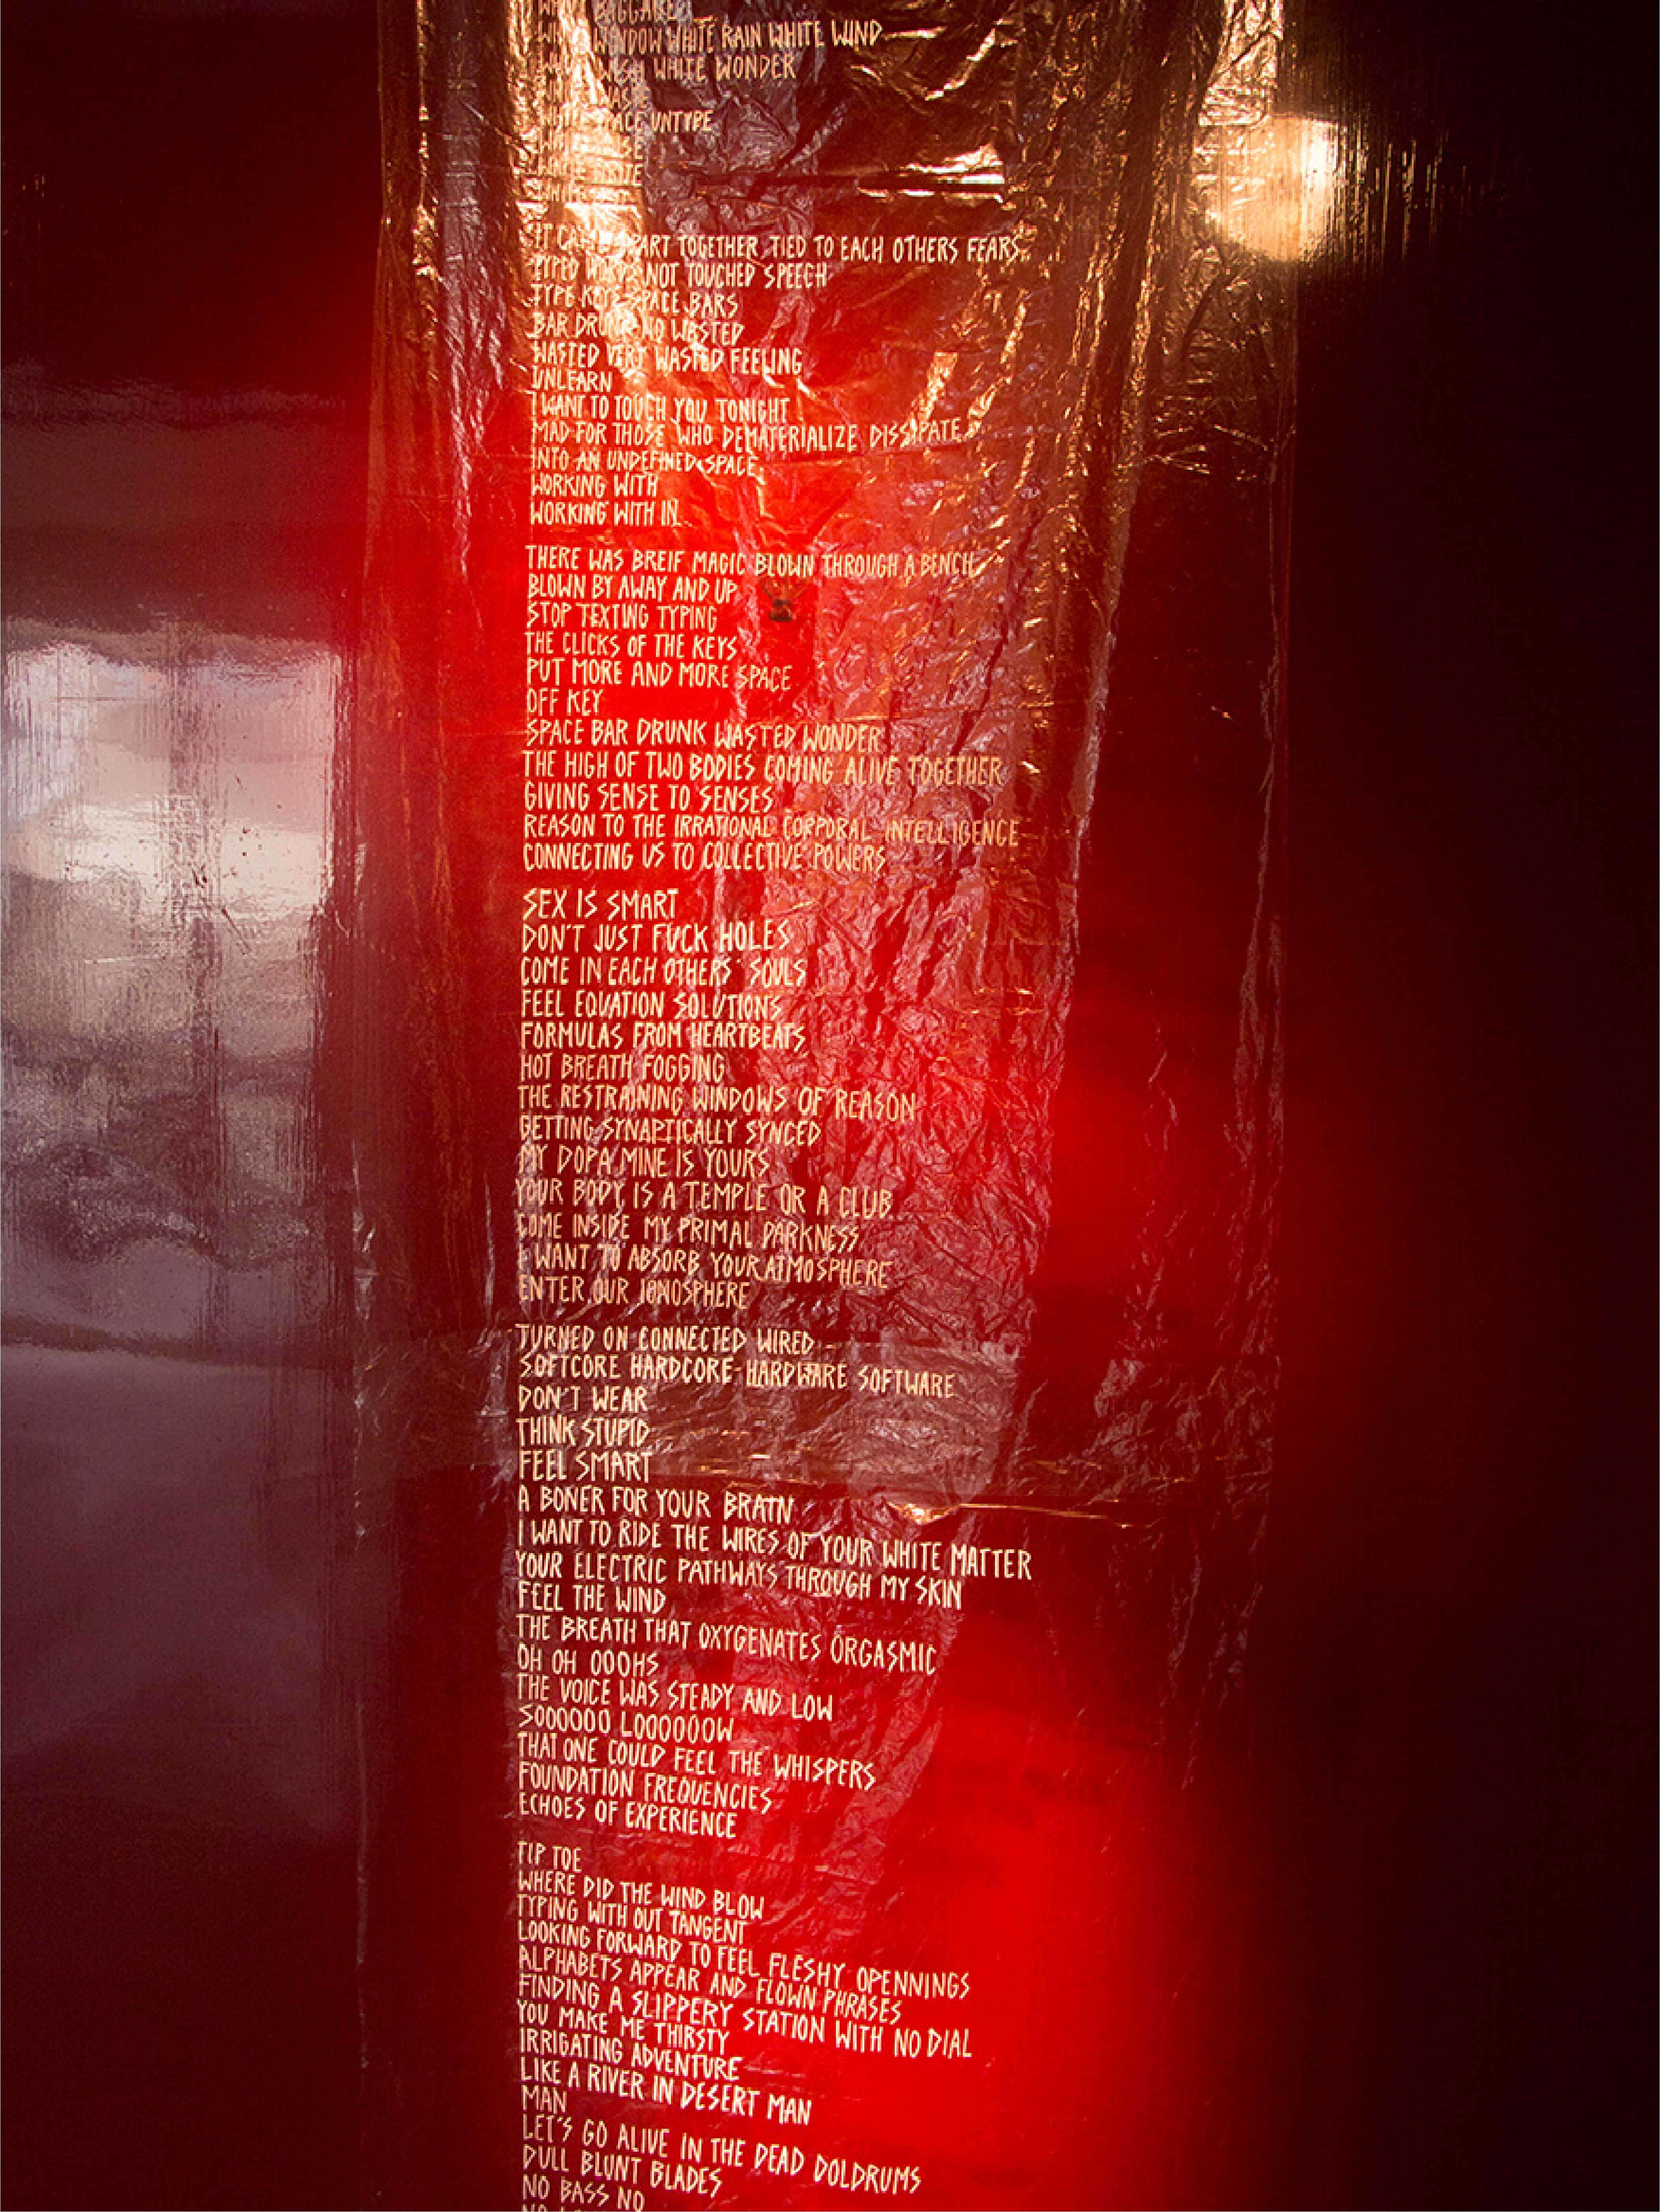 BAGGAGE
WINDOW WHITE RAIN WHITE WIND
WISH WHITE WONDER
WASTE
WHITE SPACE UNTYPE
PART TOGETHER TIED TO EACH OTHERS FEARS
TYPED NOT TOUCHED SPEECH
TYPE KEYS SPACE BARS
BAR DRUNK NO WASTED
WASTED VERY WASTED FEELING
UNLEARN
I WANT TO TOUCH YOU TONIGHT
MAD FOR THOSE WHO DEMATERIALIZE DISSIPATE
INTO AN UNDEFINED SPACE
WORKING WITH
WORKING WITH IN
THERE WAS BREIF MAGIC BLOWN THROUGH A BENCH
BLOWN BY AWAY AND UP
STOP TEXTING TYPING
THE CLICKS OF THE KEYS
PUT MORE AND MORE SPACE
OFF KEY
SPACE BAR DRUNK WASTED WONDER
THE HIGH OF TWO BODIES COMING ALIVE TOGETHER
GIVING SENSE TO SENSES
REASON TO THE IRRATIONAL CORPORAL INTELLIGENCE
CONNECTING US TO COLLECTIVE POWERS
SEX IS SMART
DON'T JUST FUCK HOLES
COME IN EACH OTHERS' SOULS
FEEL EQUATION SOLUTIONS
FORMULAS FROM HEARTBEATS
HOT BREATH FOGGING
THE RESTRAINING WINDOWS OF REASON
GETTING SYNAPTICALLY SYNCED
MY DOPAMINE IS YOURS
YOUR BODY IS A TEMPLE OR A CLUB
COME INSIDE MY PRIMAL DARKNESS
I WANT TO ABSORB YOUR ATMOSPHERE
ENTER OUR IONOSPHERE
TURNED ON CONNECTED WIRED
SOFTCORE HARDCORE-HARDWARE SOFTWARE
DON'T WEAR
THINK STUPID
FEEL SMART
A BONER FOR YOUR BRAIN
I WANT TO RIDE THE WIRES OF YOUR WHITE MATTER
YOUR ELECTRIC PATHWAYS THROUGH MY SKIN
FEEL THE WIND
THE BREATH THAT OXYGENATES ORGASMIC
OH OH OOOHS
THE VOICE WAS STEADY AND LOW
SOOOOOO LOOOOOOW
THAT ONE COULD FEEL THE WHISPERS
FOUNDATION FREQUENCIES
ECHOES OF EXPERIENCE
TIP TOE
WHERE DID THE WIND BLOW
TYPING WITH OUT TANGENT
LOOKING FORWARD TO FEEL FLESHY OPENNINGS
ALPHABETS APPEAR AND FLOWN PHRASES
FINDING A SLIPPERY STATION WITH NO DIAL
YOU MAKE ME THIRSTY
IRRIGATING ADVENTURE
LIKE A RIVER IN DESERT MAN
MAN
LET'S GO ALIVE IN THE DEAD DOLDRUMS
DULL BLUNT BLADES
NO BASS NO